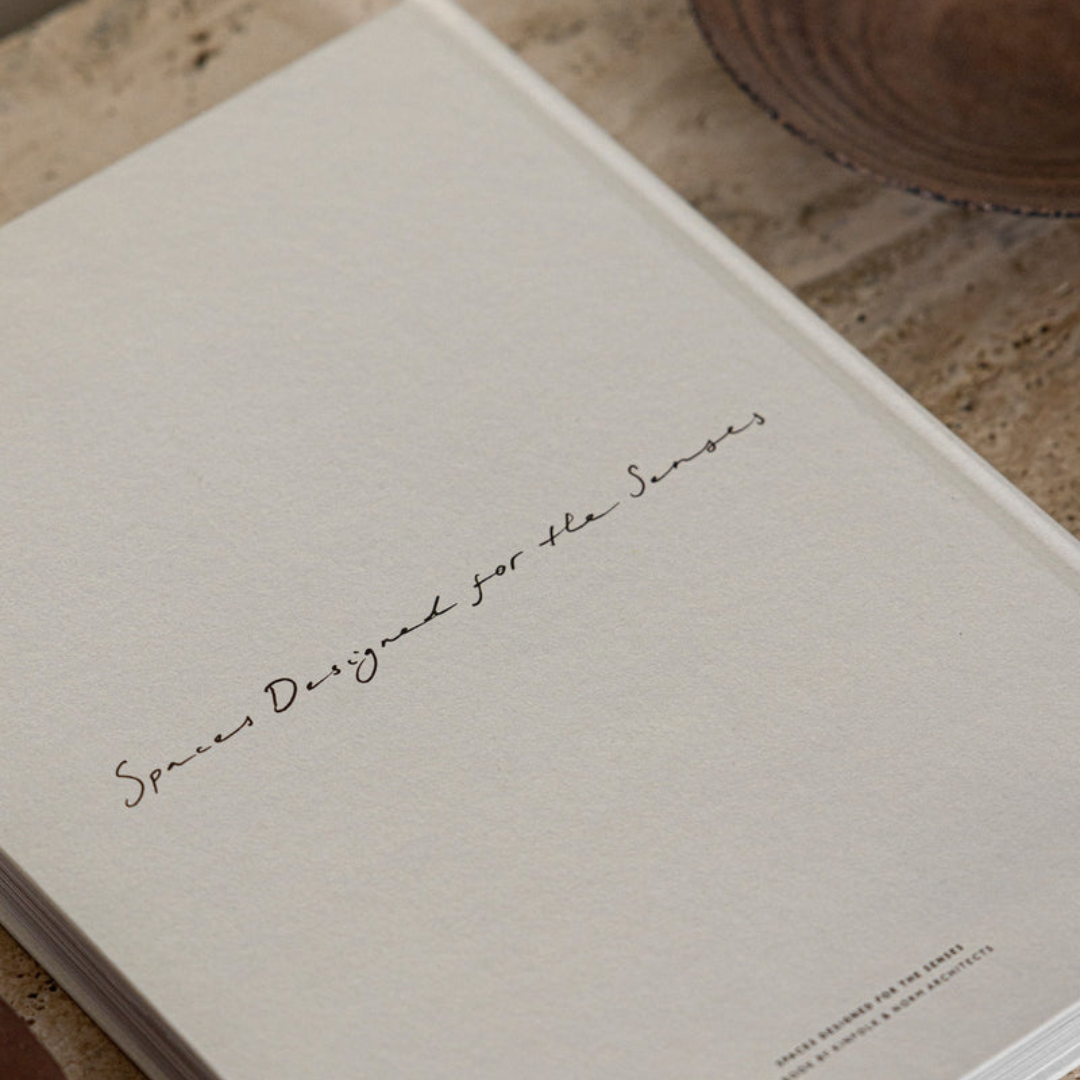 Spaces Designed for the Senses
SPACES DESIGNED FOR THE SENSES
BY KINFOLK & NORM ARCHITECTS